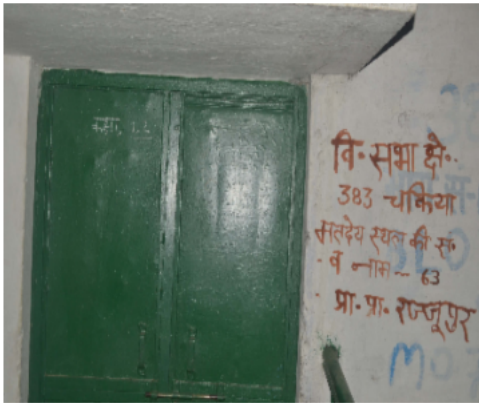 कक्षा, 1.2
वि. सभा क्षे..
383 चकिया
मतदेय स्थल की सं.
व नाम -- 63
प्रा. प्रा. रज्जूपुर